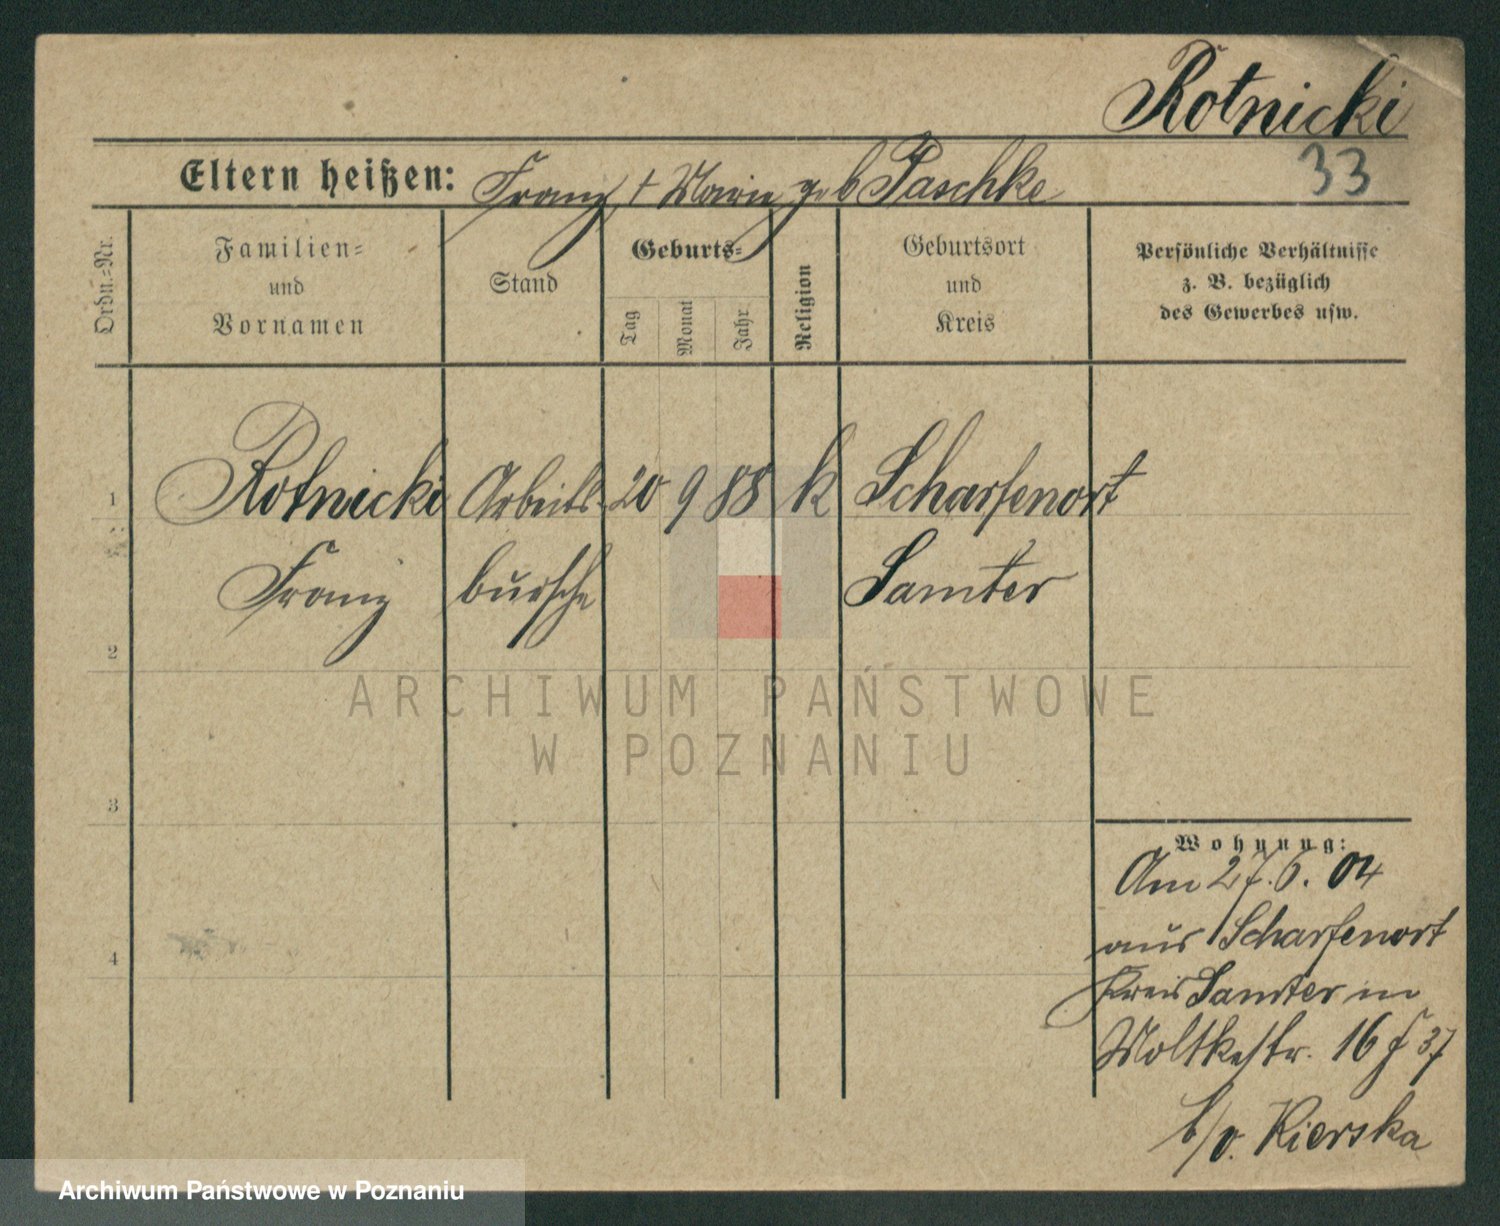 Rotnicki
33
Eltern heißen: Franz + Marie geb Paschke
Ordn.=Nr.
Familien=
und
Vornamen
Stand
Geburts=
Tag
Monat
Jahr
Religion
Geburtsort
und
Kreis
Persönliche Verhältnisse
z. B. bezüglich
des Gewerbes usw.
1 Rotnicki Arbeits- 20 9 88 k Scharfenort
Franz bursche Samter
2
ARCHIWUM PAŃSTWOWE
W POZNANIU
3
Wohnung:
Am 27.6. 04
aus Scharfenort
4
Kreis Samter in
Moltkestr. 16 37
b/v. Kierska
Archiwum Państwowe w Poznaniu